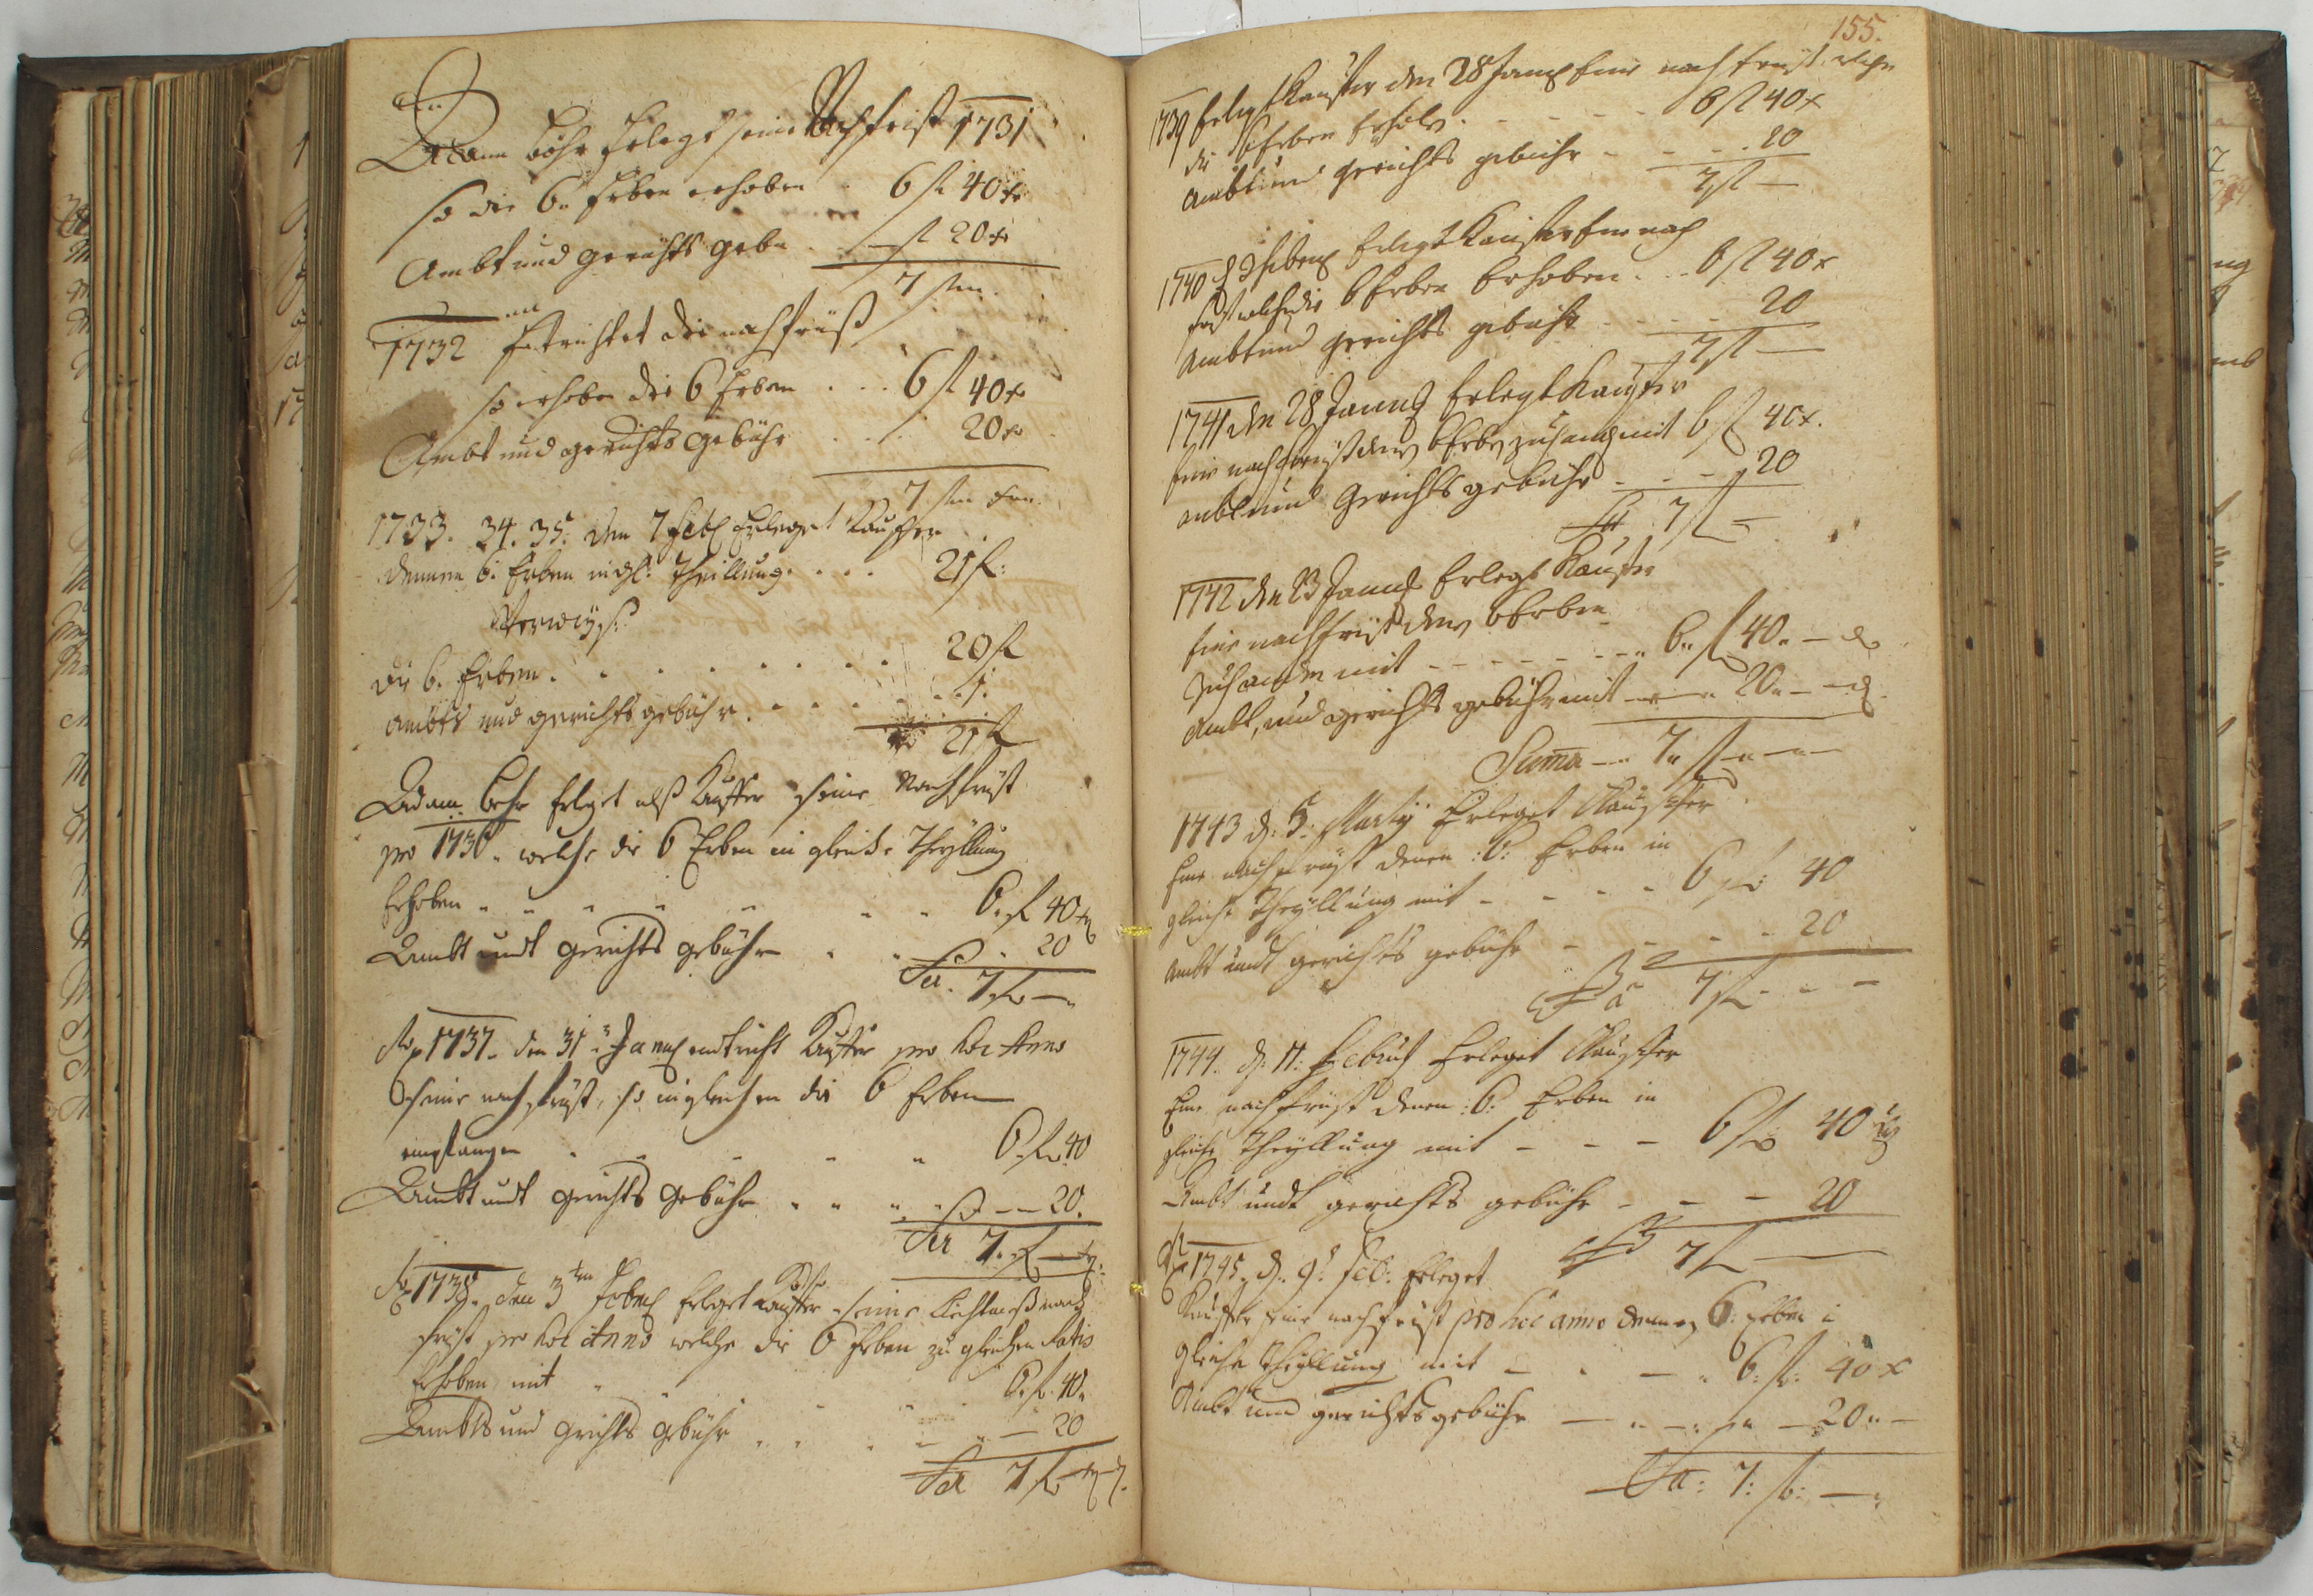 Adam Böhr Erlegt seine Nachfrist 1731
so die 6. Erben erhoben . 6 fl 40 xr
Ambt und gerichts gebr . — fl 20 xr
7 fl
1732 Entrichtet die nachfrüst
so erhoben die 6 Erben . . . 6 fl 40 xr
Ambt und gerichts gebühr . . . 20 xr
7 fl
1733. 34. 35. den 7 Feb Erleget Kauffer
dennen 6. Erben in gl: Theillung. . . . 21 fl:
die 6. Erben . . . . . . . 20 fl
ambts und gerichts gebühr . . . . . 1.
21 fl
Adam Behr Erleget alß Kauffer seine Nachfrist
pro 1736. welche die 6 Erben in gleicher Theyllung
Erhoben . . . . 6. fl 40 xr
Ambt undt gerichts gebühr . . . 20
Sa. 7 fl —
Ao 1737. den 31 Janu entricht Kauffer pro hoc Anno
seine nachfrist, so ingleichen die 6 Erben
empfangen . . . . . 6. fl. 40
Ambt undt gerichts Gebühr . . . . — — 20.
Sa 7. fl — xr
Ao 1738. den 3ten Febru Erleget Kauffer seine Liechtmeß nach
frist pro hoc Anno welche die 6 Erben zu gleichen Ratis
Erhoben mit . . . 6. fl. 40.
Ambts und grichts Gebühr . . . — — 20
Sa 7 fl — xr
155.
1739 Erlegt Kauffer den 28 Janu seine nachfrüst welche
die 6 Erben Erhoben . - - - 6 fl 40 x
ambt und gerichts gebühr - - - . 20
7 fl —
1740 Erlegt Kauffer seine nach
frist welche die 6 Erben Erhoben . . . 6 fl 40 x
Ambt und gerichts gebühr . - - - 20
7 fl —
1741 den 28 Janu Erlegt Kauffer
seine nachfrist denen 6 Erben zuhanden mit 6 fl 40 x.
ambt und Gerichts gebühr - - - 20
Sa 7 fl —
1742 den 23 Janu Erlegt Kauffer
seine nachfrist denen 6 Erben
zuhanden mit - - - - - - - 6 „ fl 40 „ — d
Ambt, und gerichts gebühr mit — „ — „ 20 „ — — d
Suma — „ 7 „ fl — „ — „ —
1743 d: 5: Marty Erleget Kauffer
Eine nachfrist denen :6: Erben in
gleiche Theyllung mit - - - - 6 fl: 40
ambt undt gerichts gebühr - - - - 20
Sa 7 fl - - -
1744. d: 11: Februa Erleget Kauffer
Eine nachfrist denen :6: Erben in
gleiche Theyllung mit - - - 6 fl 40 xr
Ambt undt gerichts gebühr - - - 20
Sa 7 fl —
Ao 1745. d. 9: Feb: Erleget
Kauffer seine nachfrist pro hoc anno dennen 6: Erben in
gleiche Theyllung mit - . — . 6: fl: 40 x
Ambt und gerichts gebühr — „ — „ — 20 „ —
Sa: 7: fl: — „